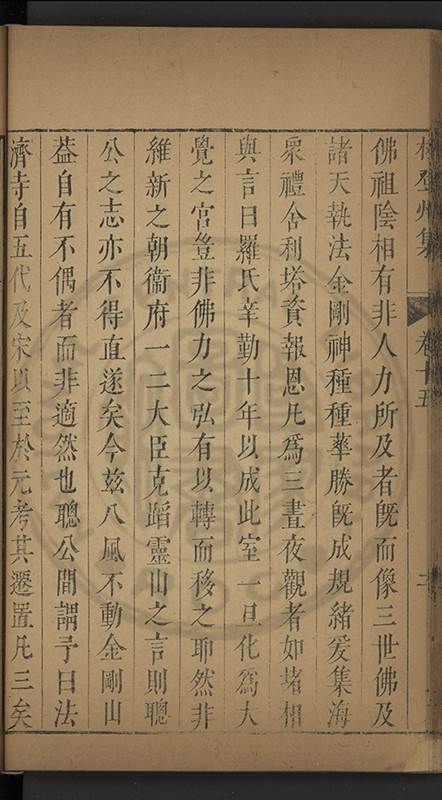 林登州集 卷十五 二
佛祖陰相有非人力所及者旣而像三世佛及
諸天執法金剛神種種華勝旣成規緒爰集海
衆禮舍利塔資報恩凡爲三晝夜觀者如堵相
與言曰羅氏辛勤十年以成此室一旦化爲大
覺之宮豈非佛力之弘有以轉而移之耶然非
維新之朝衞府一二大臣克蹈靈山之言則聰
公之志亦不得直遂矣今玆八風不動金剛山
益自有不偶者而非適然也聰公間謂予曰法
濟寺自五代及宋以至於元考其遷置凡三矣